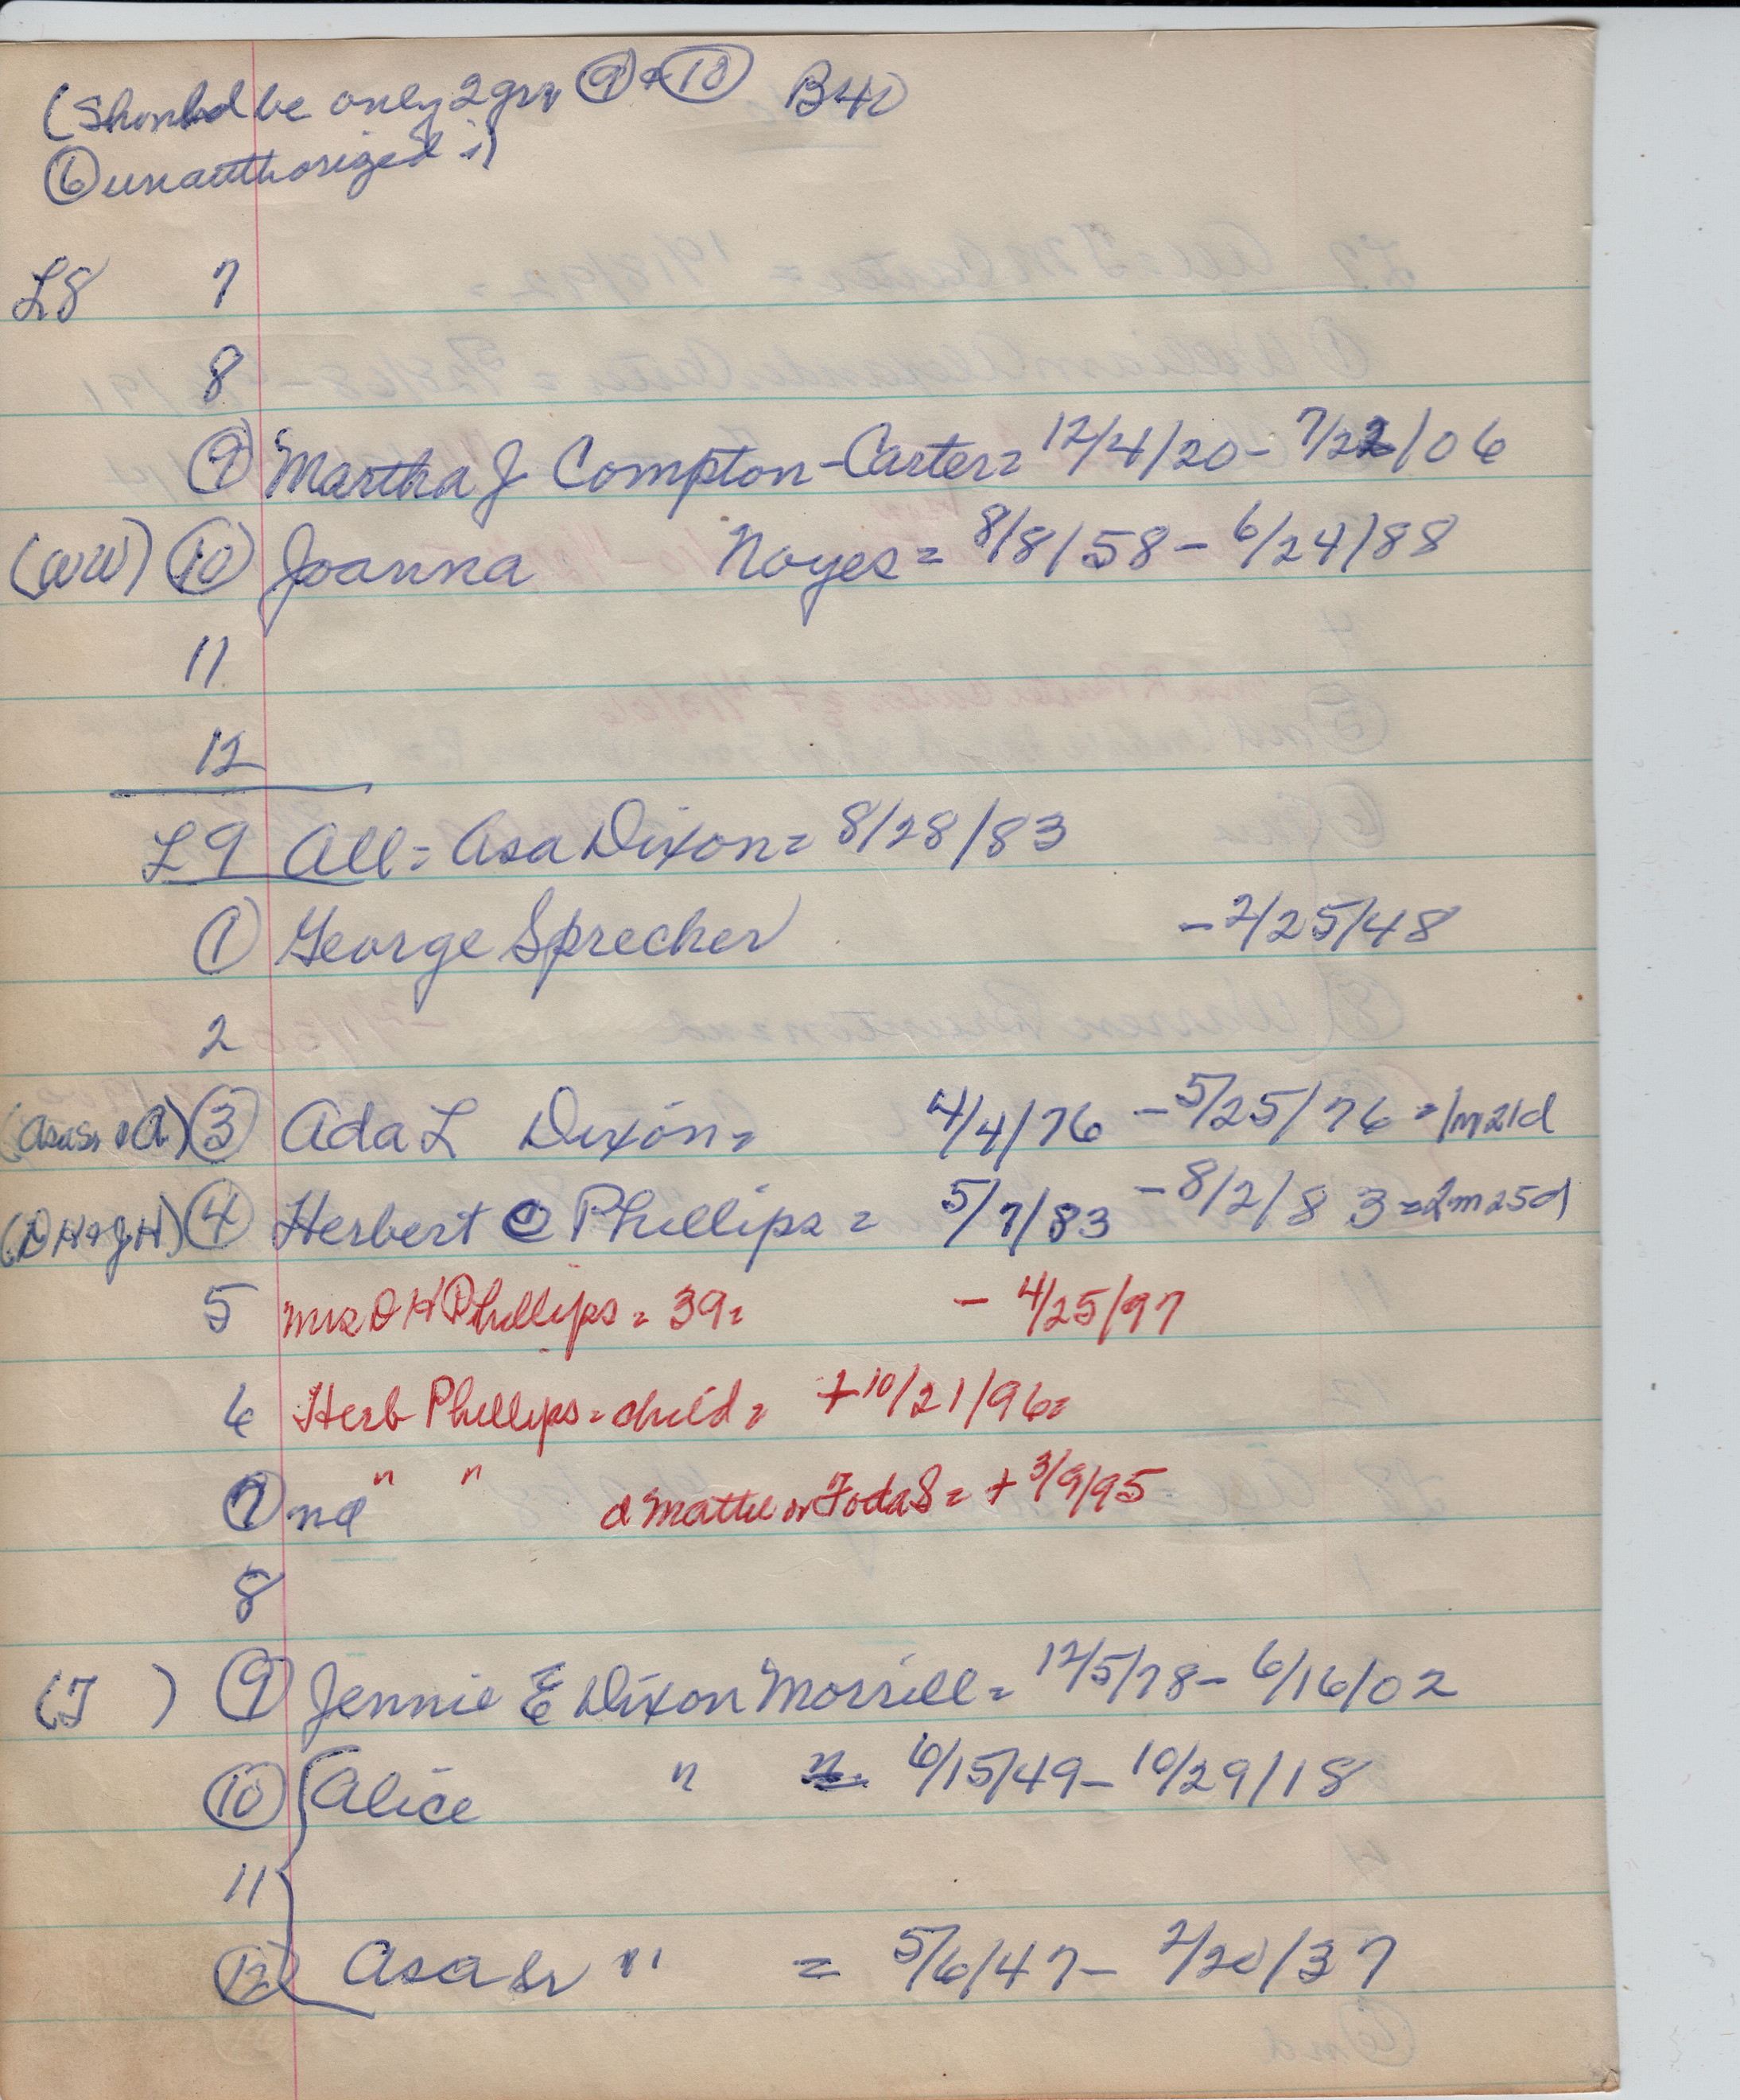 (Should be only 2 grs ⑨ + ⑩ B40
⑥ unauthorized :)
L8 7
8
⑨ Martha J Compton-Carter = 12/4/20 - 7/22/06
(WW) ⑩ Joanna Noyes = 8/8/58 - 6/24/88
11
12
L9 All = Asa Dixon = 8/28/83
① George Sprecher - 2/25/48
2
(Asa Sr & A) ③ Ada L Dixon = 4/4/76 - 5/25/76 = 1m21d
(D H & J H) ④ Herbert C Phillips = 5/7/83 - 8/2/83 = 2m25d
5 Mrs D H Phillips = 39 = - 4/25/97
6 Herb Phillips = child = + 10/21/96 =
⑦ nd " " d Mattie or + 3/9/95
8
(J ) ⑨ Jennie E Dixon Morrill = 12/5/78 - 6/16/02
⑩ Alice " 6/15/49 - 10/29/18
11
⑫ Asa Sr " = 5/6/47 - 2/20/37